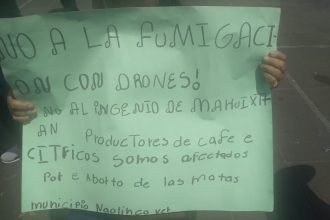 NO A LA FUMIGACI
ON CON DRONES!
NO AL INGENIO DE MAHUIXTL
AN PRODUCTORES DE CAFE e
CITRICOS SOMOS afectados
Por e Aborto de las matas
municipio Naolinco ver